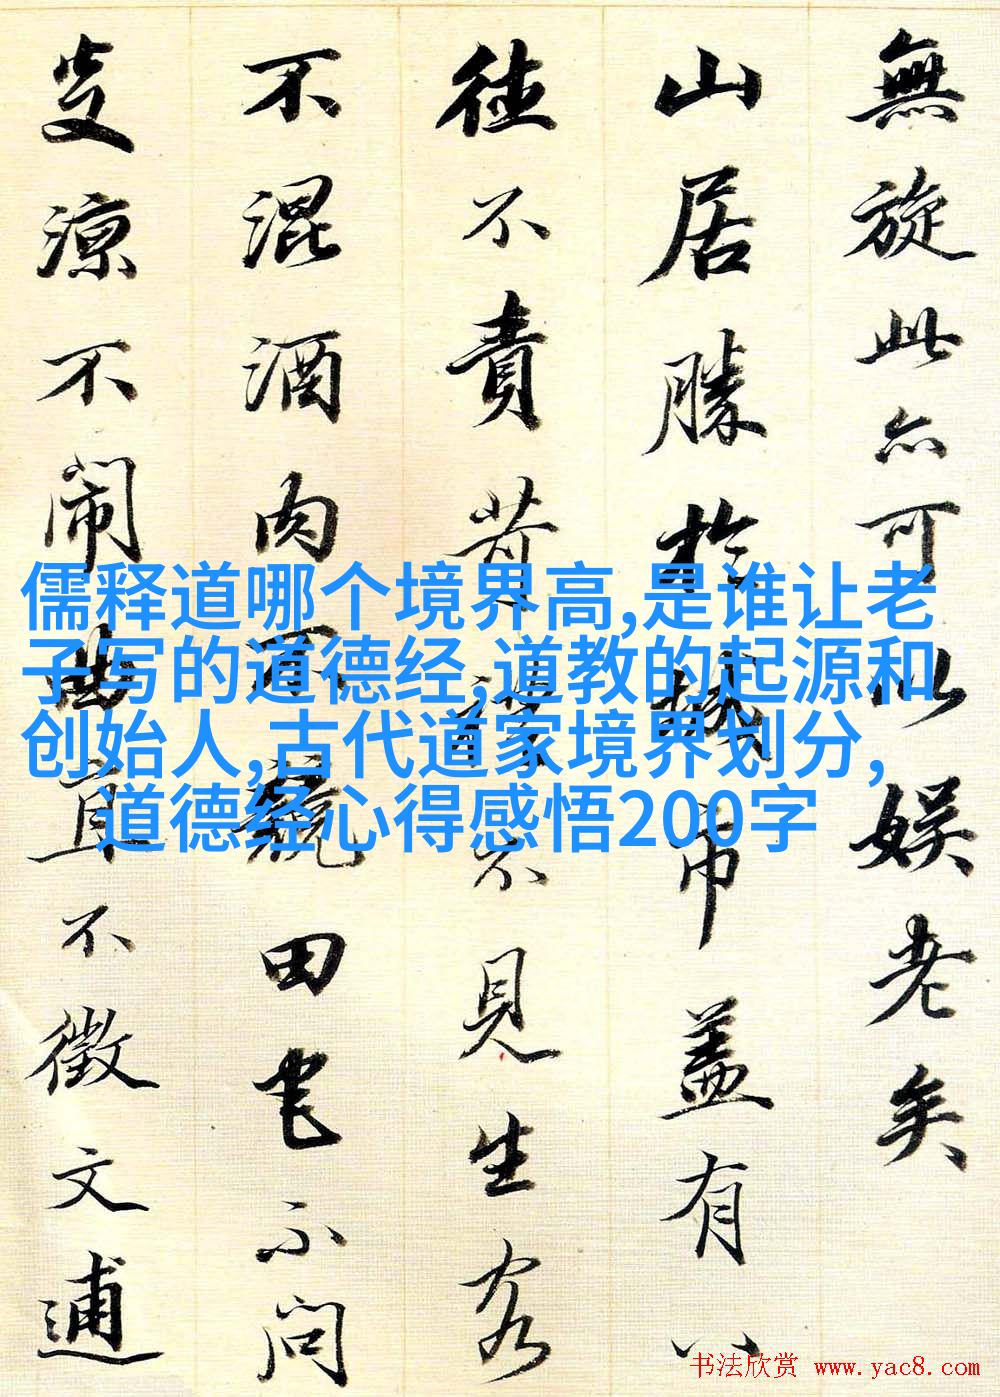 無旋此亦可以娱老矣
山居勝於城市蓋有八
徳不責苛禮不見生客
不混酒肉不競田宅不問
炎涼不闹曲直不徵文逋
儒释道哪个境界高,是谁让老
子写的道德经,道教的起源和
创始人,古代道家境界划分,
道德经心得感悟200字
书法欣赏 www.yac8.com